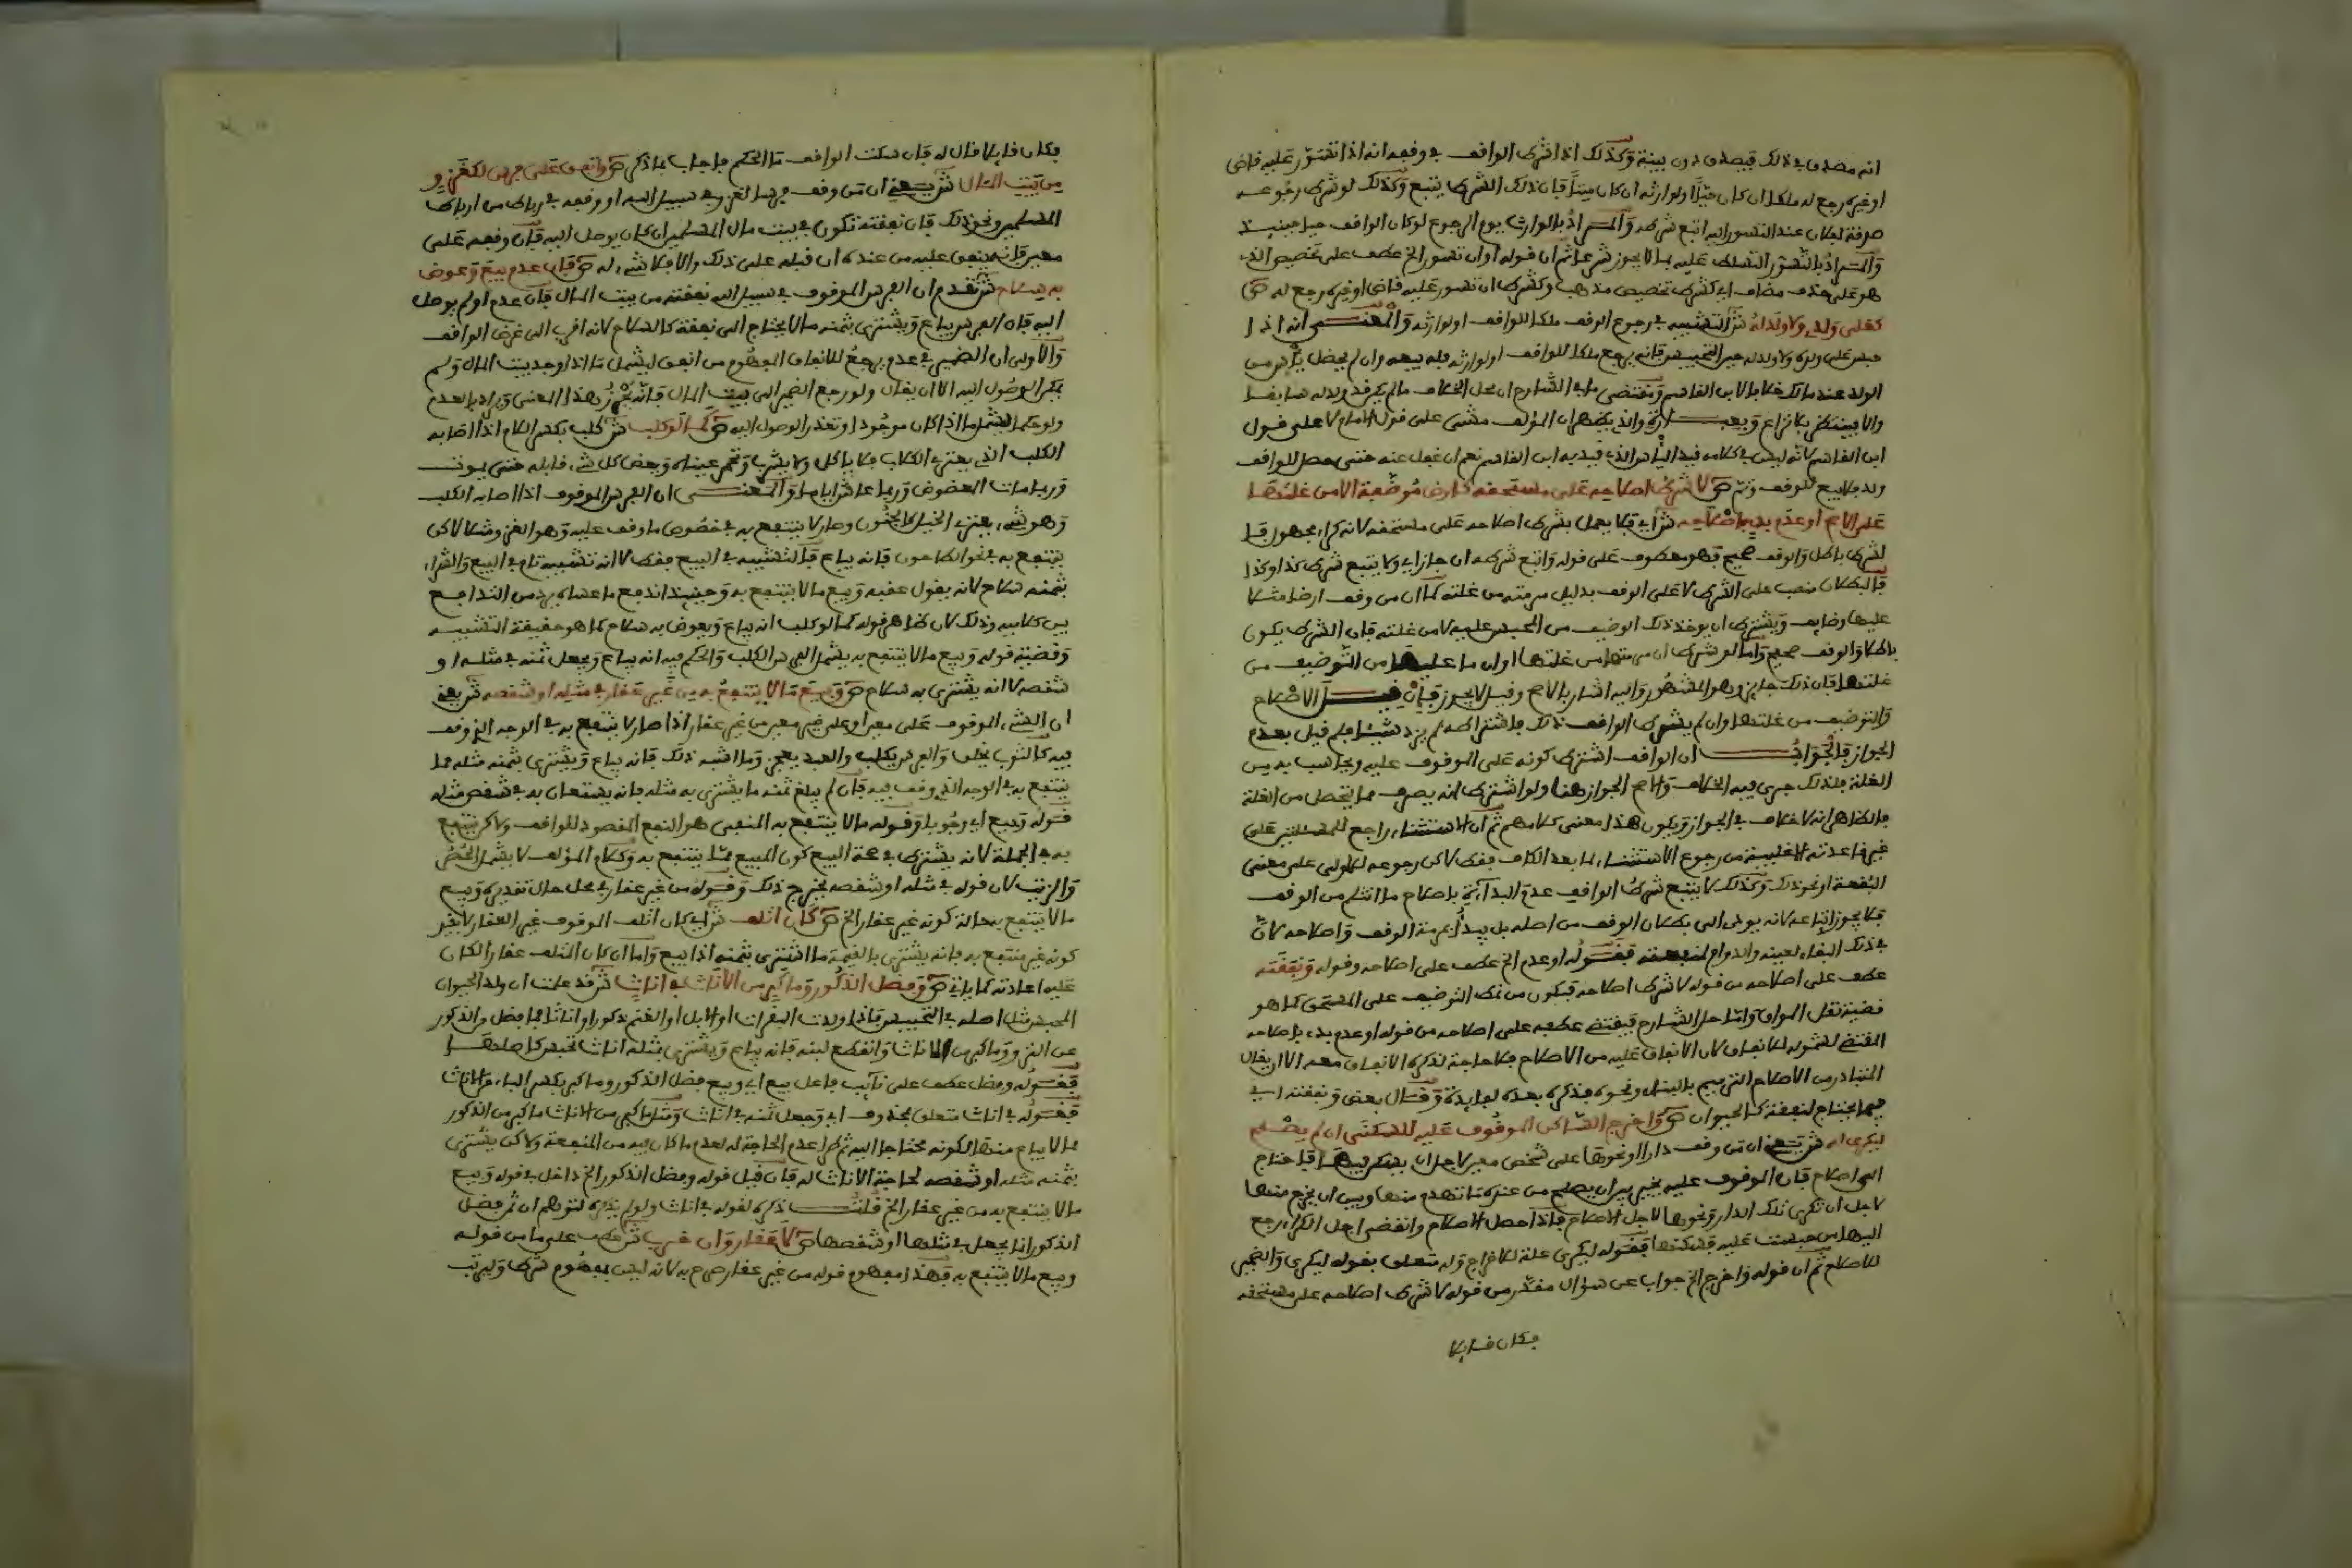 انه مصدق في ذلك فيصدق دون بينة وكذلك اذا شرط الواقف في وقفه انه اذا تسور عليه قاض
او غيره رجع له ملكا ان كان حيا او لوارثه ان كان ميتا فان ذلك الشرط يتبع وكذلك لو شرط رجوعه
صدقة لفلان عند التسور اليه اتبع شرطه والمراد بالوارث يوم الرجوع لو كان الواقف حيا حينئذ
والمراد بالتسور التسلط عليه بما لا يجوز شرعا ثم ان قوله او ان تسور الخ عطف على تخصيص الذي
هو على حذف مضاف اي كشرط تخصيص مذهب وكشرط ان تسور عليه قاض او غيره رجع له ص
كعلى ولدي ولا ولد له ش التشبيه في رجوع الوقف ملكا للواقف او لوارثه والمعنى انه اذا
حبس على ولده ولا ولد له حين التحبيس فانه يرجع ملكا للواقف او لوارثه فله بيعه وان لم يحصل ياس من
الولد عند مالك خلافا لابن القاسم ومقتضى ما في الشارح ان محل الخلاف ما لم يكن قد ولد له سابقا
والا فينتظر بلا نزاع وبعبارة والذي يظهر ان المؤلف مشى على قول الامام لا على قول
ابن القاسم لانه ليس في كلامه قيد الياس الذي قيد به ابن القاسم نعم ان غفل عنه حتى حصل للواقف
ولد فلا يبيع للوقف وتم ص لا شرط اصلاحه على مستحقه كارض موظفة الا من غلتها
على الاصح او عدم بدء باصلاحه ش اي فلا يعمل بشرط اصلاحه على مستحقه لانه كراء مجهول فا
لشرط باطل والوقف صحيح فهو معطوف على قوله واتبع شرطه ان جاز اي ولا يتبع شرط كذا وكذا
فالبطلان منصب على الشرط لا على الوقف بدليل مرمته من غلته كما ان من وقف ارضا مثلا
عليها وظايف ويشترط ان يوخذ ذلك التوظيف من المحبس عليه لا من غلته فان الشرط يكون
باطلا والوقف صحيح واما لو شرط ان مرمتها من غلتها او ان ما عليها من التوظيف من
غلتها فان ذلك جايز وهو المشهور واليه اشار بالاصح وقيل لا يجوز فان قيل الاصلاح
والتوظيف من غلتها وان لم يشترط الواقف ذلك فاشتراطه لم يزد شيئا فلم قيل بعدم
الجواز فالجواب ان الواقف اشترط كونه على الموقوف عليه ويحاسب به من
الغلة فلذلك جرى فيه الخلاف والاصح الجواز هنا ولو اشترط انه يصرف مما يتحصل من الغلة
فالظاهر انه لا خلاف في الجواز ويكون هذا معنى كلامهم ثم ان الاستثناء راجع للمسئلتين على
غير قاعدته الاغلبية من رجوع الاستثناء لما بعد الكاف فقط لاكن رجوعه للاولى على معنى
النفقة او نحو ذلك وكذلك لا يتبع شرط الواقف عدم البداءة باصلاح ما انثلم من الوقف
فلا يجوز اتباعه لانه يودي الى بطلان الوقف من اصله بل يبدأ بمرمة الوقف واصلاحه لان
في ذلك البقاء لعينه والدوام لمنفعته فقوله او عدم الخ عطف على اصلاحه وقوله ونفقته
عطف على اصلاحه من قوله لا شرط اصلاحه فيكون من نمط التوظيف على المستحق كما هو
قضية نقل المواق واما حل الشارح فيقتضي عطفه على اصلاحه من قوله او عدم بدء باصلاحه
المقتضي لشموله للانفاق لان الانفاق عليه من الاصلاح فلا حاجة لذكره الانفاق معه الا ان يقال
المتبادر من الاصلاح الترميم بالبناء ونحوه فذكره بعده لفايدة وقال بعضهم ونفقته اي
فيما يحتاج لنفقة كالحيوان ص واخرج الساكن الموقوف عليه للسكنى ان لم يصلح
ليكرى له ش يعني ان من وقف دارا او نحوها على شخص معين لاجل ان يسكن فيها فاحتاج
الى اصلاح فان الموقوف عليه يخير بين ان يصلح من عنده ما انهدم منها وبين ان يخرج منها
لاجل ان تكرى تلك الدار ونحوها لاجل الاصلاح فاذا حصل الاصلاح وانقضى اجل الكراء رجع
اليها من حبست عليه فسكنها فقوله ليكرى علة للاخراج وله متعلق بقوله ليكرى والضمير
للاصلاح ثم ان قوله واخرج الخ جواب عن سؤال مقدر من قوله لا شرط اصلاحه على مستحقه
فكان قايلا
فكان قايلا قال له فان سكت الواقف ما الحكم فاجاب بما ذكر ص وانفق على فرس لكغزو
من بيت المال ش يعني ان من وقف فرسا للغزو في سبيل الله او وقفه في رباط من ارباط
المسلمين ونحو ذلك فان نفقته تكون في بيت مال المسلمين ان كان يوصل اليه فان وقفه على
معين فانه ينفق عليه من عنده ان قبله على ذلك والا فلا شيء له ص فان عدم بيع وعوض
به سلاح ش تقدم ان الفرس الموقوف في سبيل الله نفقته من بيت المال فان عدم او لم يوصل
اليه فان الفرس يباع ويشترى بثمنه ما لا يحتاج الى نفقة كالسلاح لانه اقرب الى غرض الواقف
والاولى ان الضمير في عدم يرجع للانفاق المفهوم من انفق ليشمل ما اذا وجد بيت المال ولم
يمكن الوصول اليه الا ان يقال ولو رجع الضمير الى بيت المال فانه يحرز هذا المعنى ويراد بالعدم
ولو حكما ليشمل ما اذا كان موجودا وتعذر الوصول اليه ص كما لو كلب ش كلب بكسر اللام اذا اصابه
الكلب الذي يعتري الكلاب فلا ياكل ولا يشرب وتحمر عيناه ويعض كل شيء قابله حتى يموت
وربما مات المعضوض وربما عاش اياما والمعنى ان الفرس الموقوف اذا اصابه الكلب
وهو شيء يعتري الخيل كالجنون وصار لا ينتفع به في خصوص ما وقف عليه وهو الغزو مثلا لاكن
ينتفع به في نحو الطاحون فانه يباع فالتشبيه في البيع فقط لا انه تشبيه تام في البيع والشراء
بثمنه سلاح لانه يقول عقبه وبيع ما لا ينتفع به وحينئذ اندفع ما عساه يرد من التدافع
بين كلاميه وذلك لان ظاهر قوله كما لو كلب انه يباع ويعوض به سلاح كما هو حقيقة التشبيه
وقضية قوله وبيع ما لا ينتفع به يشمل الفرس الكلب والحكم فيه انه يباع ويجعل ثمنه في مثله او
شقصه لا انه يشترى به سلاح ص وبيع ما لا ينتفع به من غير عقار في مثله او شقصه ش يعني
ان الشيء الموقوف على معين او على غير معين من غير عقار اذا صار لا ينتفع به في الوجه الذي وقف
فيه كالثوب يخلق والفرس يكلب والعبد يعجز وما اشبه ذلك فانه يباع ويشترى بثمنه مثله مما
ينتفع به في الوجه الذي وقف فيه فان لم يبلغ ثمنه ما يشترى به مثله فانه يستعان به في شقص مثله
فقوله وبيع اي وجوبا وقوله ما لا ينتفع به المنفي هو النفع المقصود للواقف ولاكن ينتفع
به في الجملة لانه يشترط في صحة البيع كون المبيع مما ينتفع به وكلام المؤلف لا يشمل الحصر
والزيت لان قوله في مثله او شقصه يخرج ذلك وقوله من غير عقار في محل حال تقديره وبيع
ما لا ينتفع به حالة كونه غير عقار الخ ص كان اتلف ش اي كان اتلف الموقوف غير العقار لا بقيد
كونه غير منتفع به فانه يشترى بالقيمة ما اشترى بثمنه اذا بيع واما ان كان المتلف عقارا لكان
عليه اعادته كما ياتي ص وفضل الذكور وما كبر من الاناث في اناث ش قد علمت ان ولد الحيوان
المحبس مثل اصله في التحبيس فاذا ولدت البقرات او الابل او الغنم ذكورا واناثا فما فضل من الذكور
عن النزو وما كبر من الاناث وانقطع لبنه فانه يباع ويشترى بثمنه اناث تحبس كاصلها
فقوله وفضل عطف على نايب فاعل بيع اي وبيع فضل الذكور وما كبر بكسر الباء من الاناث
فقوله في اناث متعلق بمحذوف اي وجعل ثمنه في اناث ومثل ما كبر من الاناث ما كبر من الذكور
مما لا يباع منها لكونه محتاجا اليه ثم طرا عدم الحاجة له لعدم ما كان فيه من المنفعة ولاكن يشترى
بثمنه مثله او شقصه لحاجة الاناث له فان قيل قوله وفضل الذكور الخ داخل في قوله وبيع
ما لا ينتفع به من غير عقار الخ قلت ذكره لقوله في اناث ولو لم يذكره لتوهم ان ثمن فضل
الذكور انما يجعل في مثلها او شقصها ص لا عقار وان خرب ش عطف على ما من قوله
وبيع ما لا ينتفع به فهذا مفهوم قوله من غير عقار صرح به لانه ليس بمفهوم شرط وليرتب